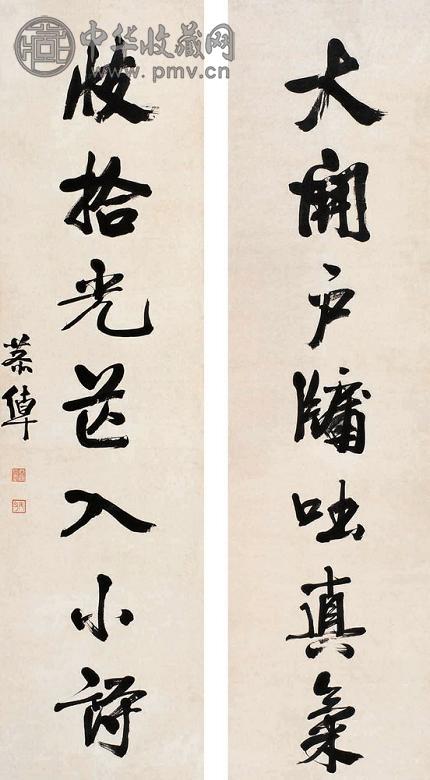 中华收藏网
www.pmv.cn
大開户牖吐真氣
收拾光芒入小詩